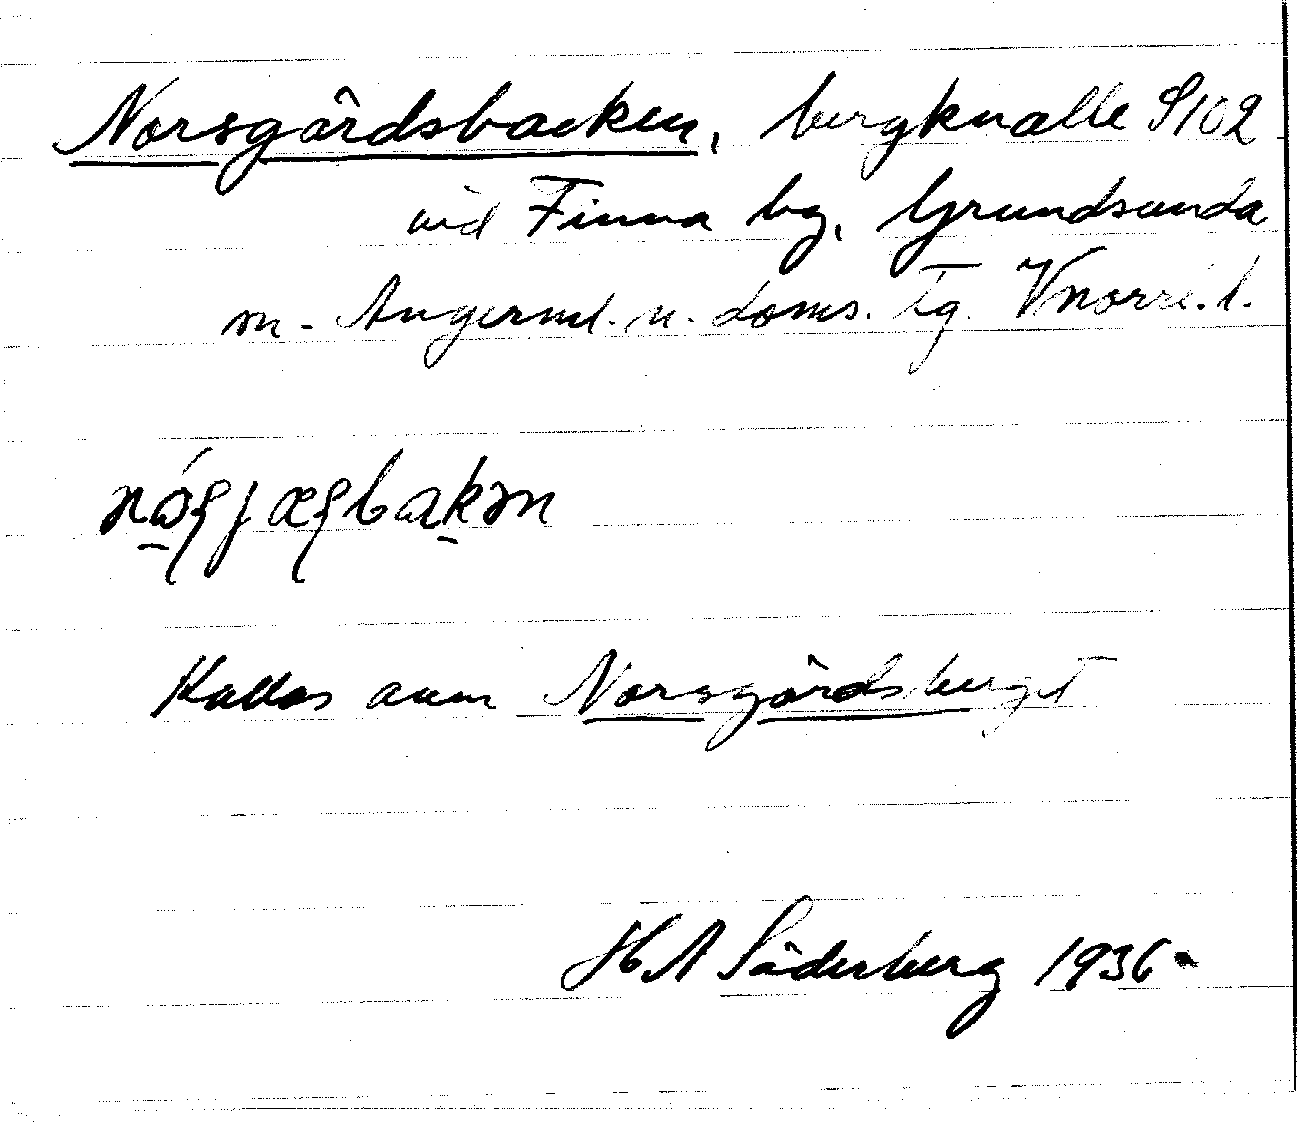 Norsgårdsbacken, bergknalle S102
vid Finna by, Grundsunda
sn. Ångerml. n. doms. tg. Vnorrl. l.
Kallas även Norsgårdsberget
H A Söderberg 1936